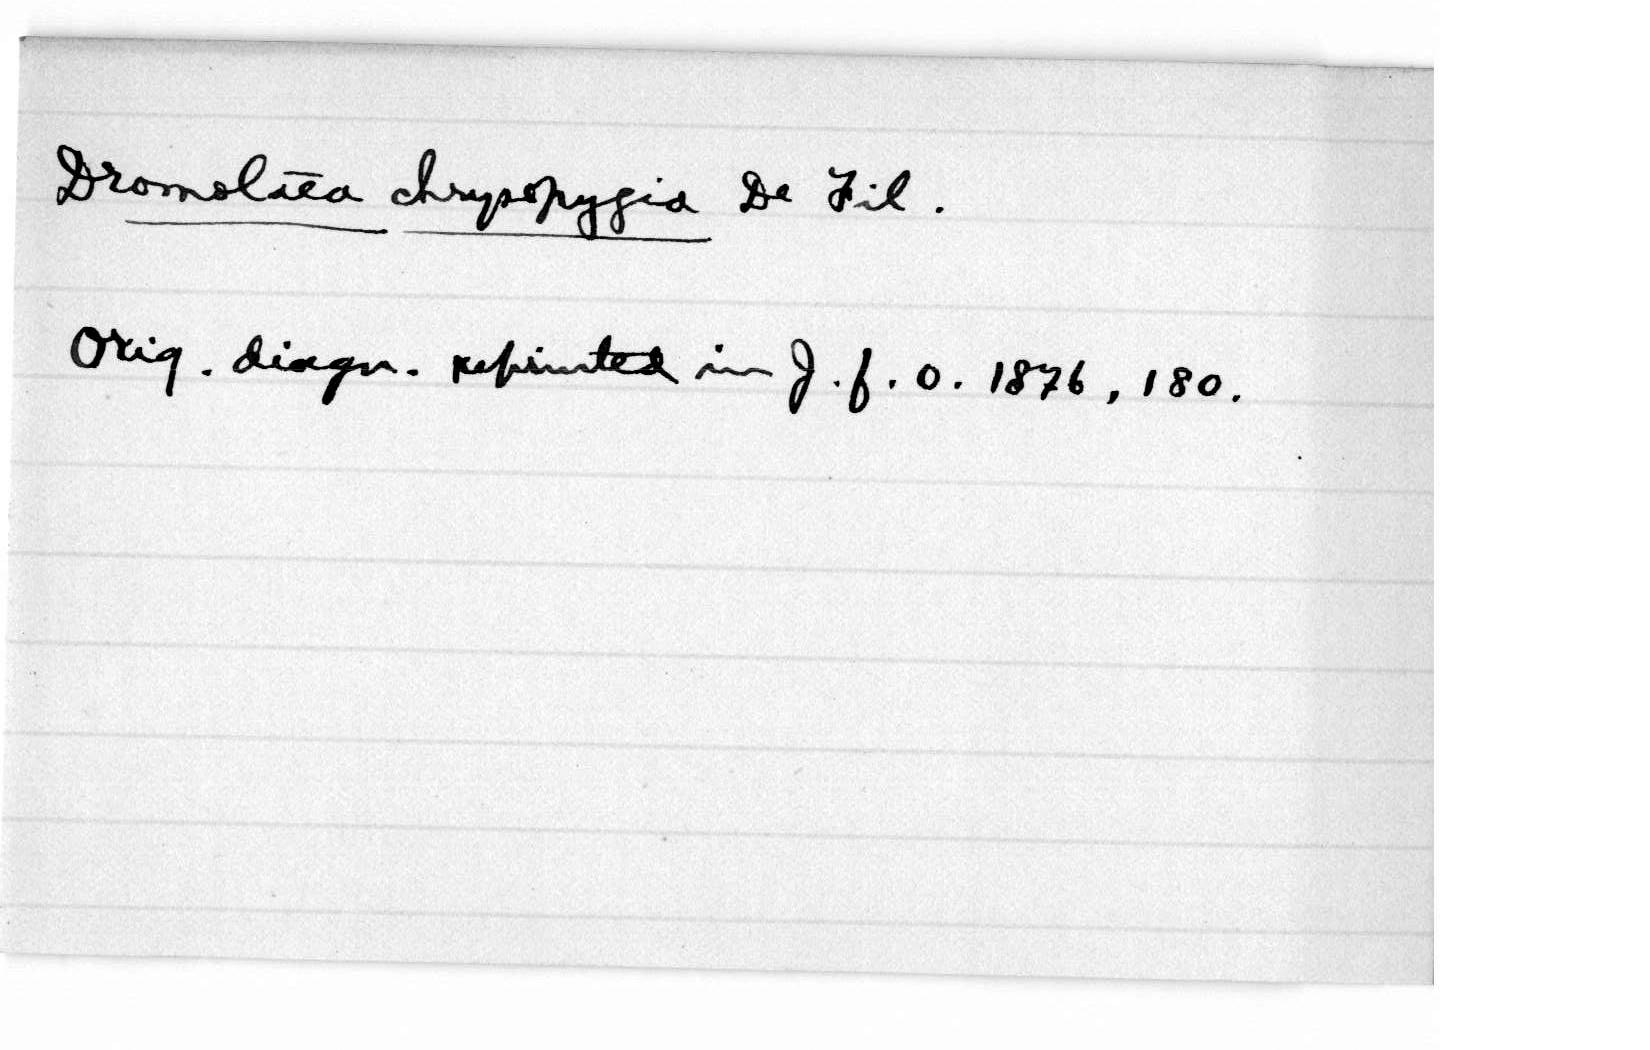 Dromolaea chrysopygia De Fil.
Orig. diagn. reprinted in J. f. O. 1876, 180.